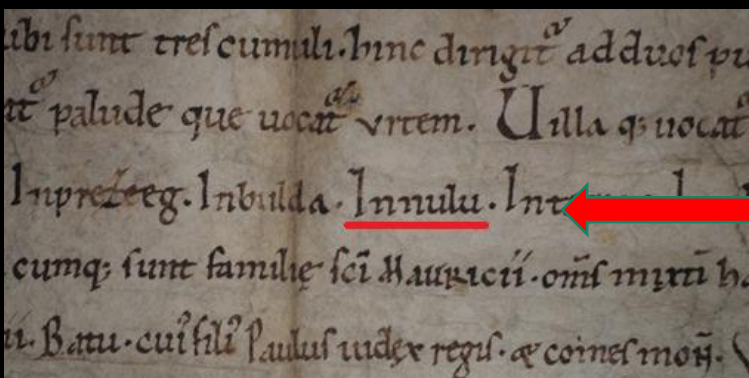 ubi sunt tres cumuli. hinc dirigit᷑ ad duos pu
at᷑ palude que uocat᷑ vrtem. Uilla q; uocat᷑
Inbulda. Innulu.
cumq; sunt familie sc̄i Mauricii. om̄s mixti h
Batu. cui᷒ fili᷒ Paulus iudex regis. & comes